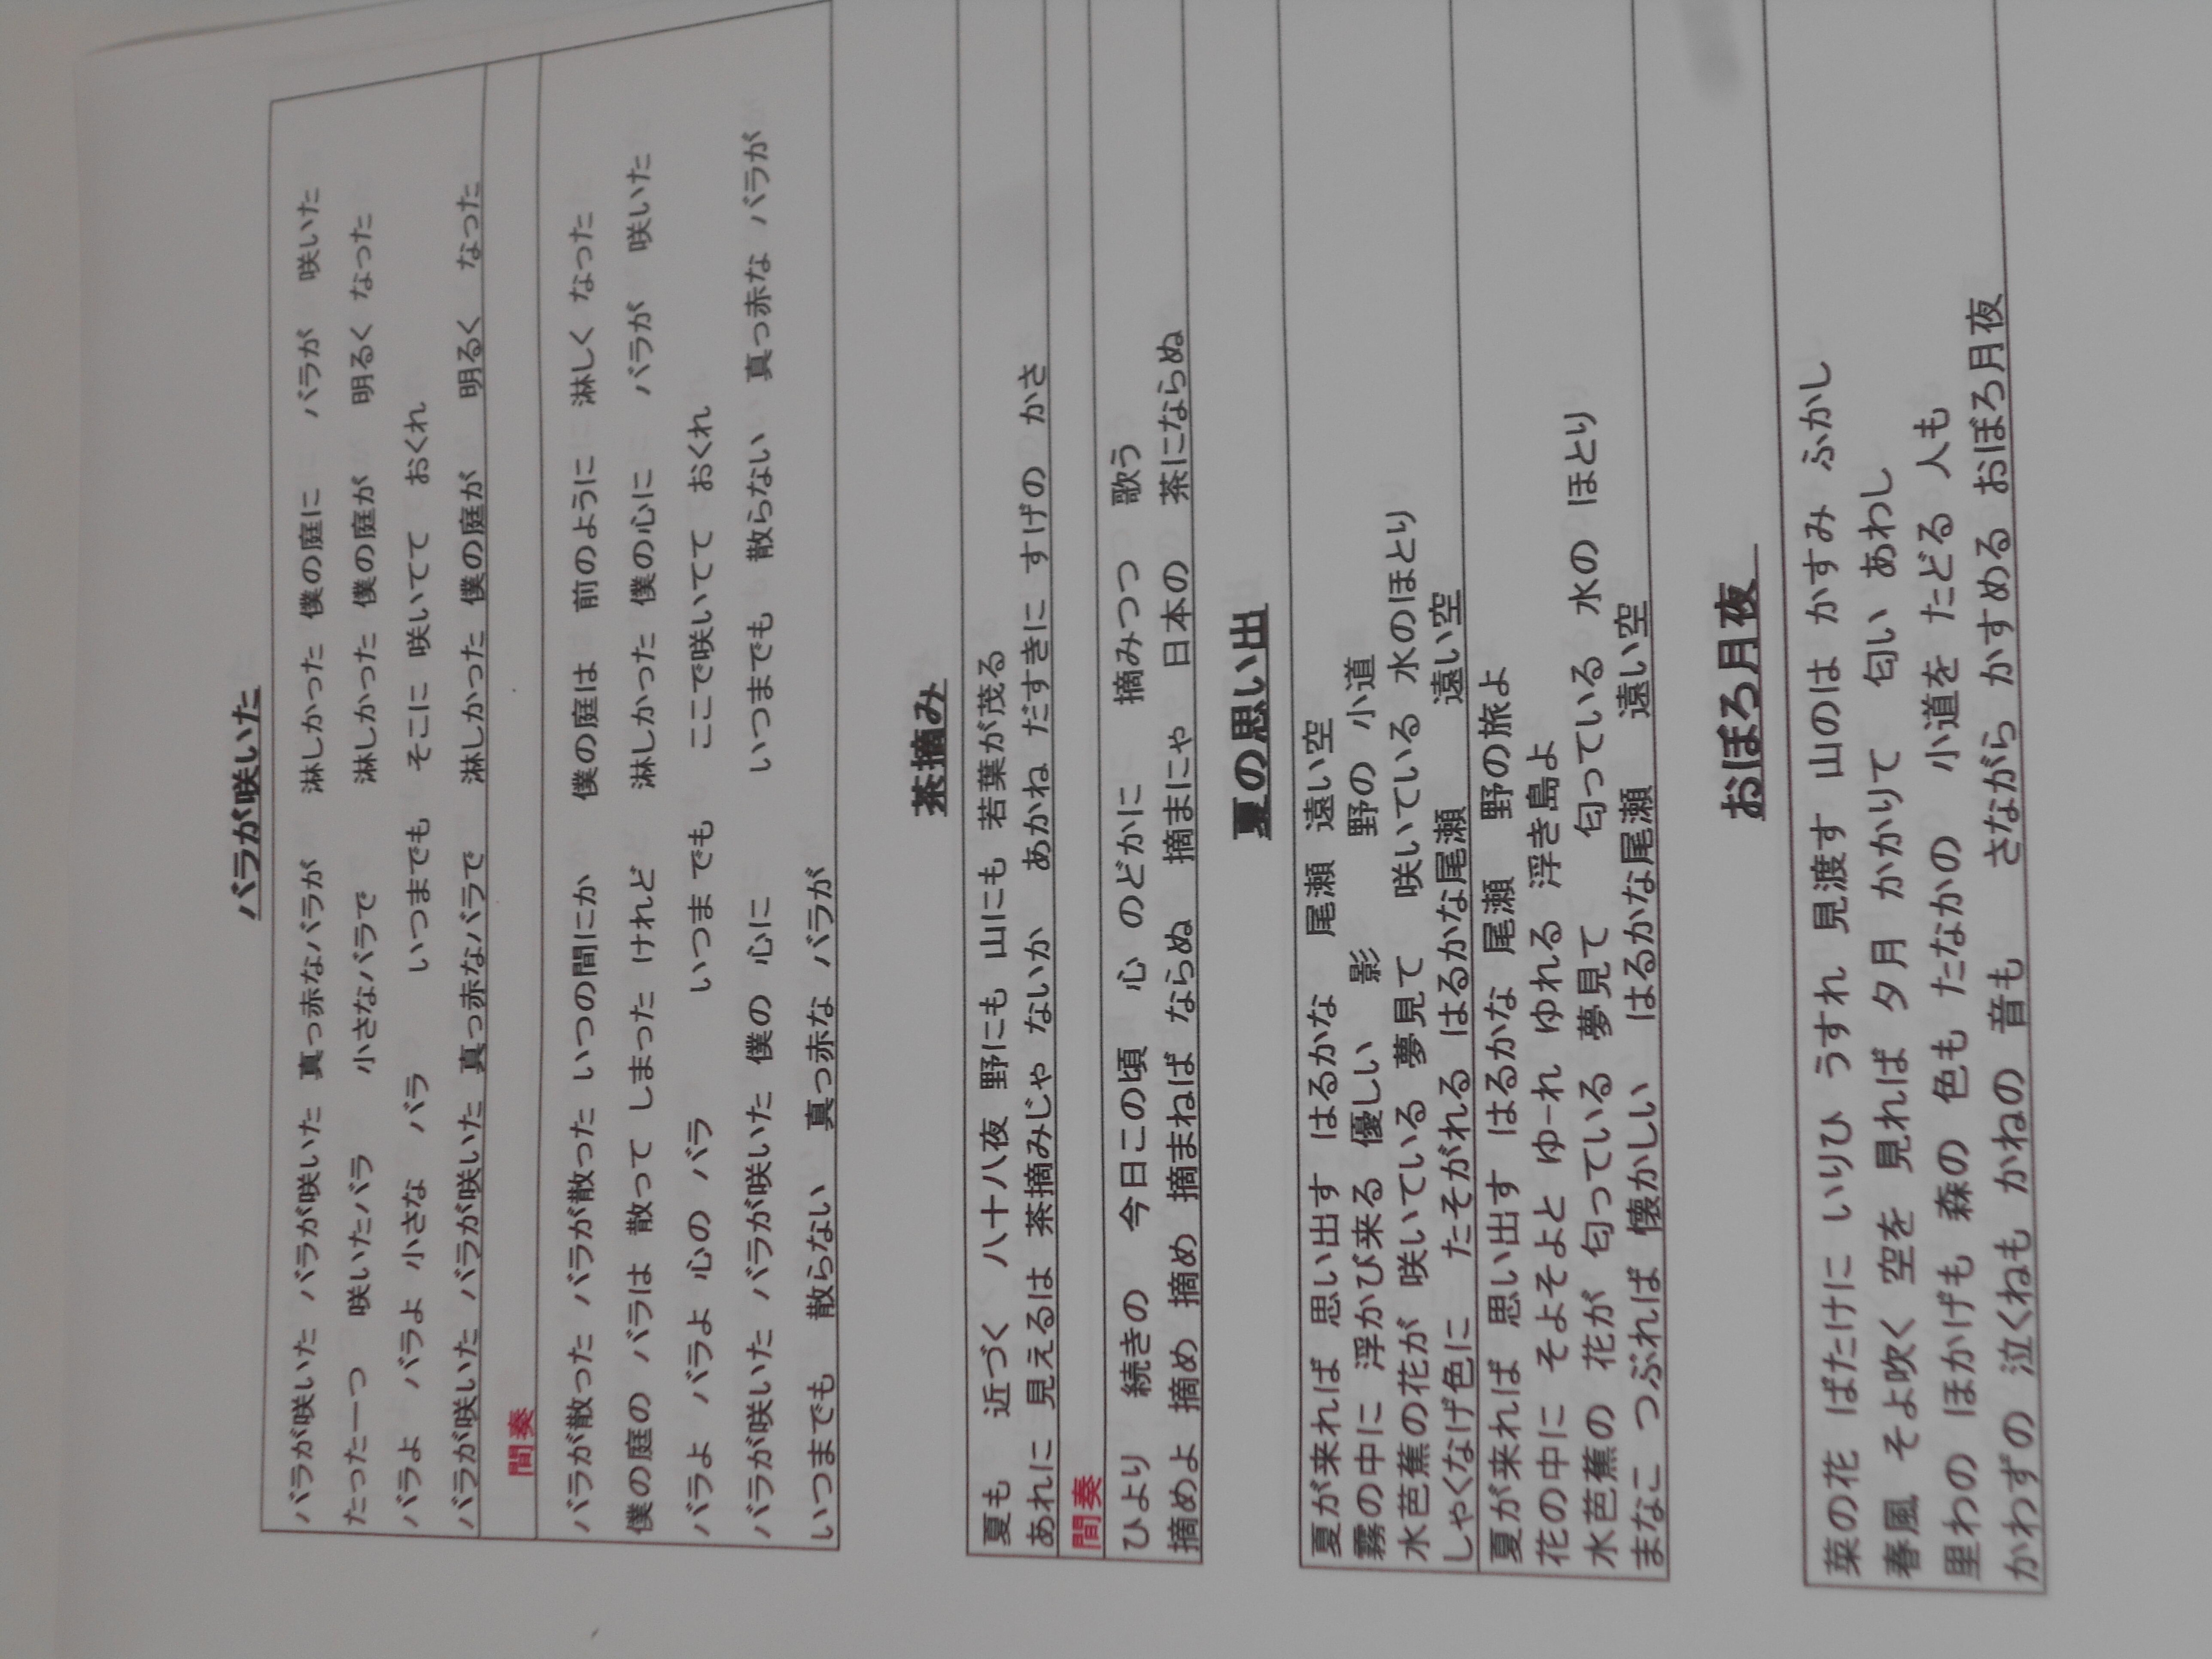 バラが咲いた
バラが咲いた バラが咲いた 真っ赤なバラが 淋しかった 僕の庭に バラが 咲いた
たった一つ 咲いたバラ 小さなバラで 淋しかった 僕の庭が 明るく なった
バラよ バラよ 小さな バラ いつまでも そこに 咲いてて おくれ
バラが咲いた バラが咲いた 真っ赤なバラで 淋しかった 僕の庭が 明るく なった
間奏
バラが散った バラが散った いつの間にか 僕の庭は 前のように 淋しく なった
僕の庭の バラは 散って しまった けれど 淋しかった 僕の心に バラが 咲いた
バラよ バラよ 心の バラ いつまでも ここで咲いてて おくれ
バラが咲いた バラが咲いた 僕の 心に いつまでも 散らない 真っ赤な バラが
いつまでも 散らない 真っ赤な バラが
茶摘み
夏も 近づく 八十八夜 野にも 山にも 若葉が茂る
あれに 見えるは 茶摘みじゃ ないか あかね だすきに すげの かさ
間奏
ひより 続きの 今日この頃 心 のどかに 摘みつつ 歌う
摘めよ 摘め 摘め 摘まねば ならぬ 摘まにゃ 日本の 茶にならぬ
夏の思い出
夏が来れば 思い出す はるかな 尾瀬 遠い空
霧の中に 浮かび来る 優しい 影 野の 小道
水芭蕉の花が 咲いている 夢見て 咲いている 水のほとり
しゃくなげ色に たそがれる はるかな尾瀬 遠い空
夏が来れば 思い出す はるかな 尾瀬 野の旅よ
花の中に そよそよと ゆーれ ゆれる 浮き島よ
水芭蕉の 花が 匂っている 夢見て 匂っている 水の ほとり
まなこ つぶれば 懐かしい はるかな尾瀬 遠い空
おぼろ月夜
菜の花 ばたけに いりひ うすれ 見渡す 山のは かすみ ふかし
春風 そよ吹く 空を 見れば 夕月 かかりて 匂い あわし
里わの ほかげも 森の 色も たなかの 小道を たどる 人も
かわずの 泣くねも かねの 音も さながら かすめる おぼろ月夜